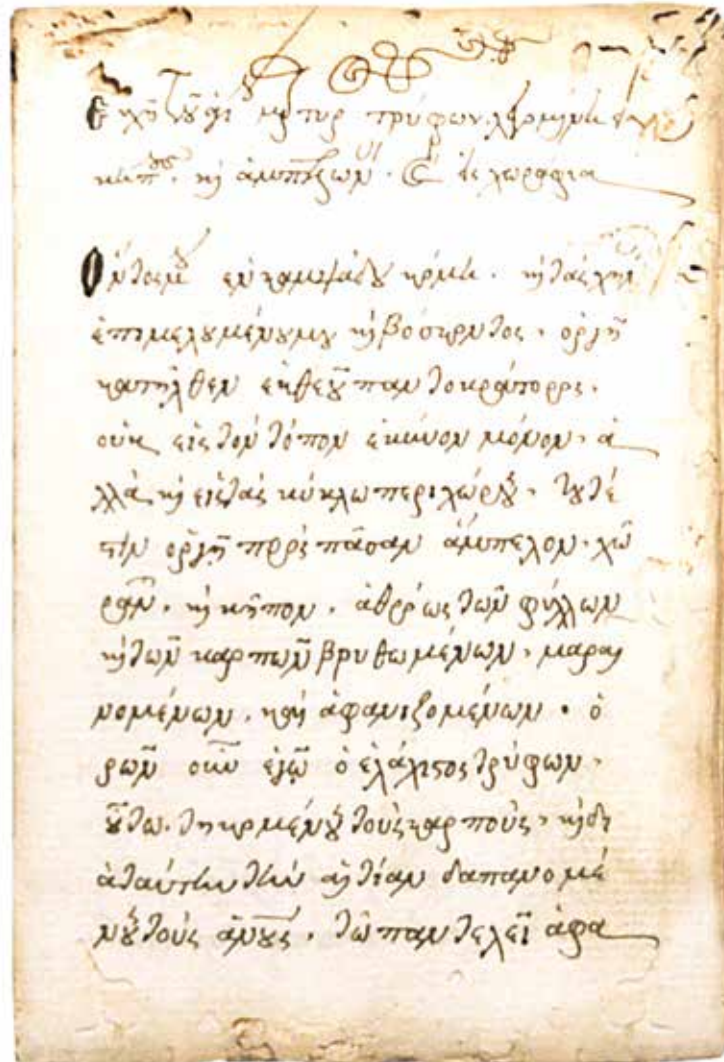 Εὐχὴ τοῦ ἁγί μρτυρ τρύφωνος λεγομένη
κηπ. κὴ ἀμπέλων. εἰς χωράφια
Ὄντος μου ἐν καμψάδου κώμη. κὴ τὰς χῆν
ἐπιμελουμένου μου κὴ βόσκοντος. ὀργὴ
κατῆλθεν ἐκ θεοῦ παντοκράτορος.
οὐκ εἰς τὸν τόπον ἐκεῖνον μόνον. ἀ
λλὰ κὴ εἰς τὰς κύκλω περιχώρου.
τὴν ὀργὴ πρὸς πᾶσαν ἄμπελον. χώ
ραν. κὴ κῆπον. ἀθρόως τῶν φύλλων
κὴ τῶν καρπῶν βρυθωμένων. μαραι
νομένων. κὴ ἀφανιζομένων. ὁ
ρῶν οὖν ἐγὼ ὁ ἐλάχιστος τρύφων.
οὕτω. τηκομένου τοὺς καρποὺς. κὴ δι
ὰ ταύτην τὴν αἰτίαν δαπανομέ
νου τοὺς ἀνους. τῶ παντελεῖ ἀφα